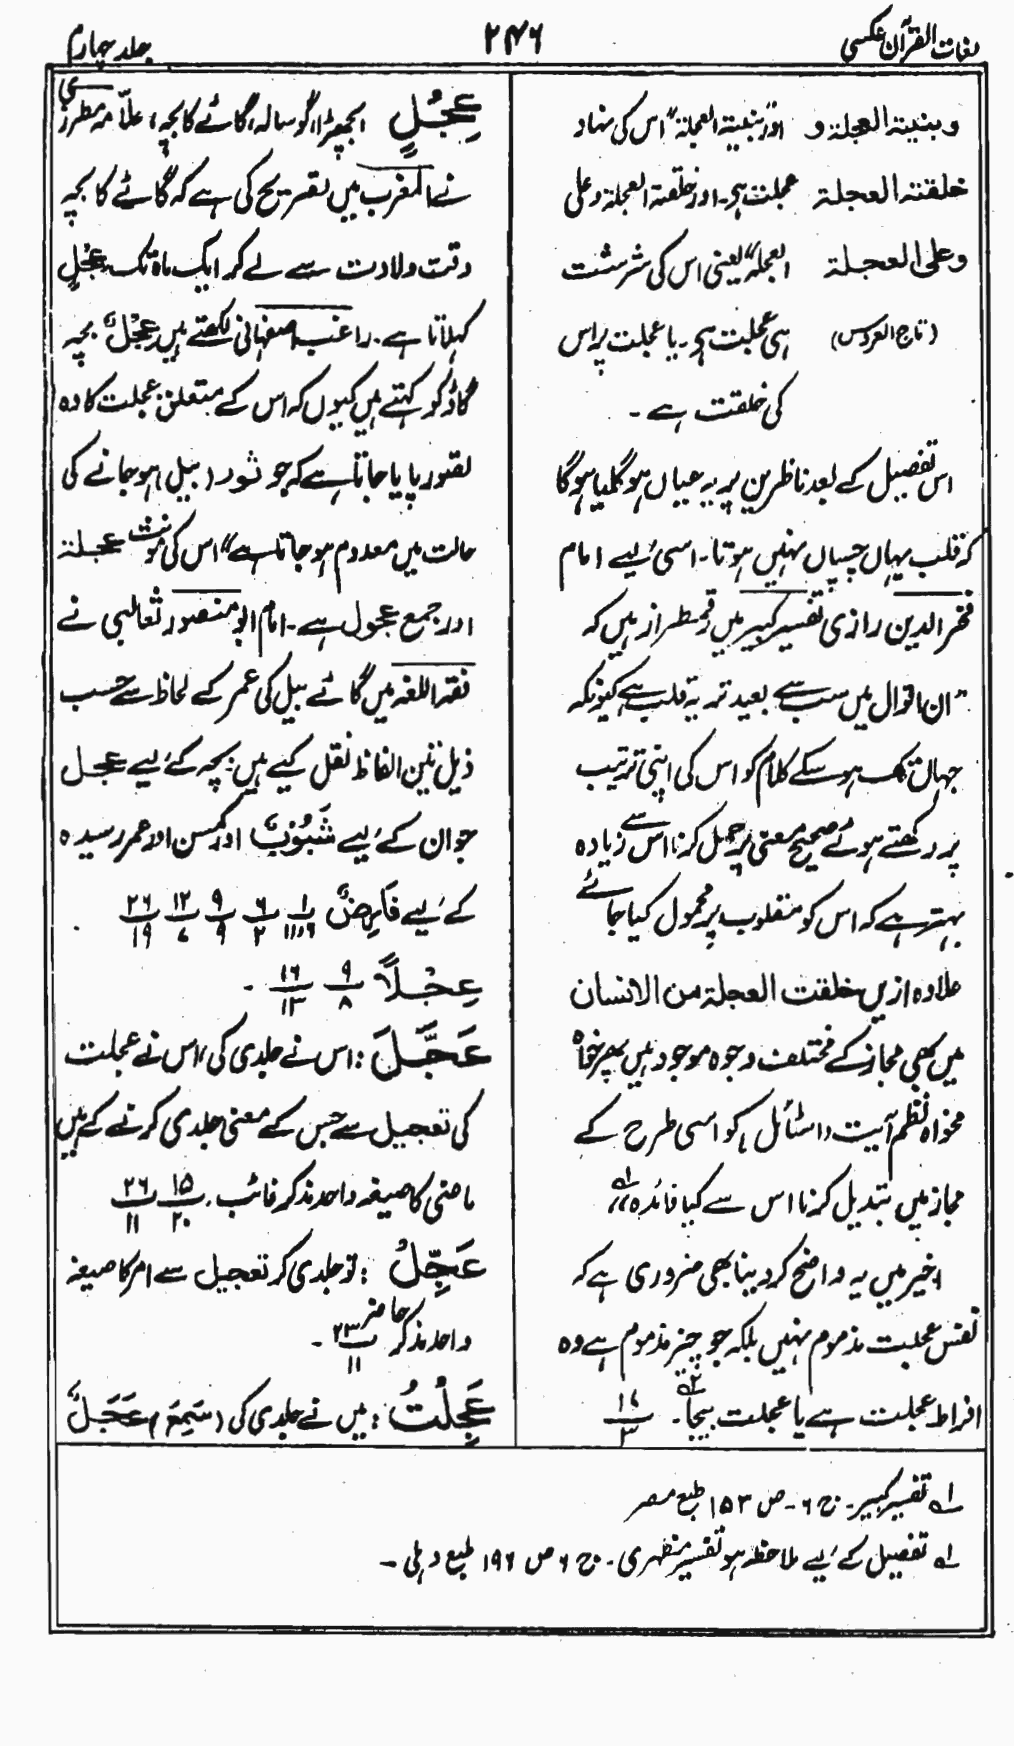 لغات القرآن عکسی
۲۴۶
جلد چہارم
وبنیتہ العجلۃ و اور بنیتہ العجلۃ" اس کی بنیاد
خلقتہ العجلۃ عجلت ہی۔ اور خلقتہ العجلۃ وعلی
وعلی العجلۃ العجلۃ" یعنی اس کی سرشت
(تاج العروس) ہی عجلت ہی۔ یا عجلت پر اس
کی خلقت ہے۔
اس تفصیل کے بعد ناظرین پر یہ عیاں ہو گیا ہوگا
کہ قلب یہاں چسپاں نہیں ہوتا۔ اسی لیے امام
فخر الدین رازی تفسیر کبیر میں رقمطراز ہیں کہ
"ان اقوال میں سب سے بعید تر یہ قلب ہے کیونکہ
جہاں تک ہو سکے کلام کو اس کی اپنی ترتیب
پر رکھتے ہوئے صحیح معنی پر حمل کرنا اس سے زیادہ
بہتر ہے کہ اس کو مقلوب پر محمول کیا جائے
علاوہ ازیں خلقت العجلۃ من الانسان
میں بھی مجاز کے مختلف وجوہ موجود ہیں پھر خواہ
مخواہ نظم آیت کو اسی طرح کے
مجاز میں تبدیل کرنا اس سے کیا فائدہ" لہ
اخیر میں یہ واضح کر دینا بھی ضروری ہے کہ
نفس عجلت مذموم نہیں بلکہ جو چیز مذموم ہے وہ
افراط عجلت ہے یا عجلت بیجا۔ ۲ہ ۱۷/۳
عِجْلٌ بچھڑا، گوسالہ، گائے کا بچہ، علامہ مطرزی
نے المغرب میں تصریح کی ہے کہ گائے کا بچہ
وقت ولادت سے لے کر ایک ماہ تک عِجْلٌ
کہلاتا ہے۔ راغب اصفہانی لکھتے ہیں عِجْلٌ بچہ
گاؤ کو کہتے ہیں کیوں کہ اس کے متعلق عجلت کا وہ
تصور پایا جاتا ہے کہ جو ثور (بیل) ہو جانے کی
حالت میں معدوم ہو جاتا ہے" اس کی مونث عجلۃ
اور جمع عجول ہے۔ امام ابو منصور ثعالبی نے
فقہ اللغہ میں گائے بیل کی عمر کے لحاظ سے حسب
ذیل تین الفاظ نقل کیے ہیں: بچہ کے لیے عجل
جوان کے لیے شَبُوْبٌ اور کمسن اور عمر رسیدہ
کے لیے فَارِضٌ ۱/۱۱،۶ ۶/۲ ۹/۹ ۱۲/۷ ۲۶/۱۹
عِجْلاً ۹/۸ ۱۶/۱۳ ۔
عَجَّلَ: اس نے جلدی کی، اس نے عجلت
کی تعجیل سے جس کے معنی جلدی کرنے کے ہیں
ماضی کا صیغہ واحد مذکر غائب۔ ۱۵/۲۰ ۲۶/۱۱
عَجِّلْ: تو جلدی کر تعجیل سے امر کا صیغہ
واحد مذکر حاضر ۲۳/۱۱ ۔
عَجِلْتُ: میں نے جلدی کی (سَمِعَ) عَجَلٌ
لہ تفسیر کبیر۔ ج ۶۔ ص ۱۵۳ طبع مصر
لہ تفصیل کے لیے ملاحظہ ہو تفسیر مظہری۔ ج ۶ ص ۱۹۶ طبع دہلی ۔